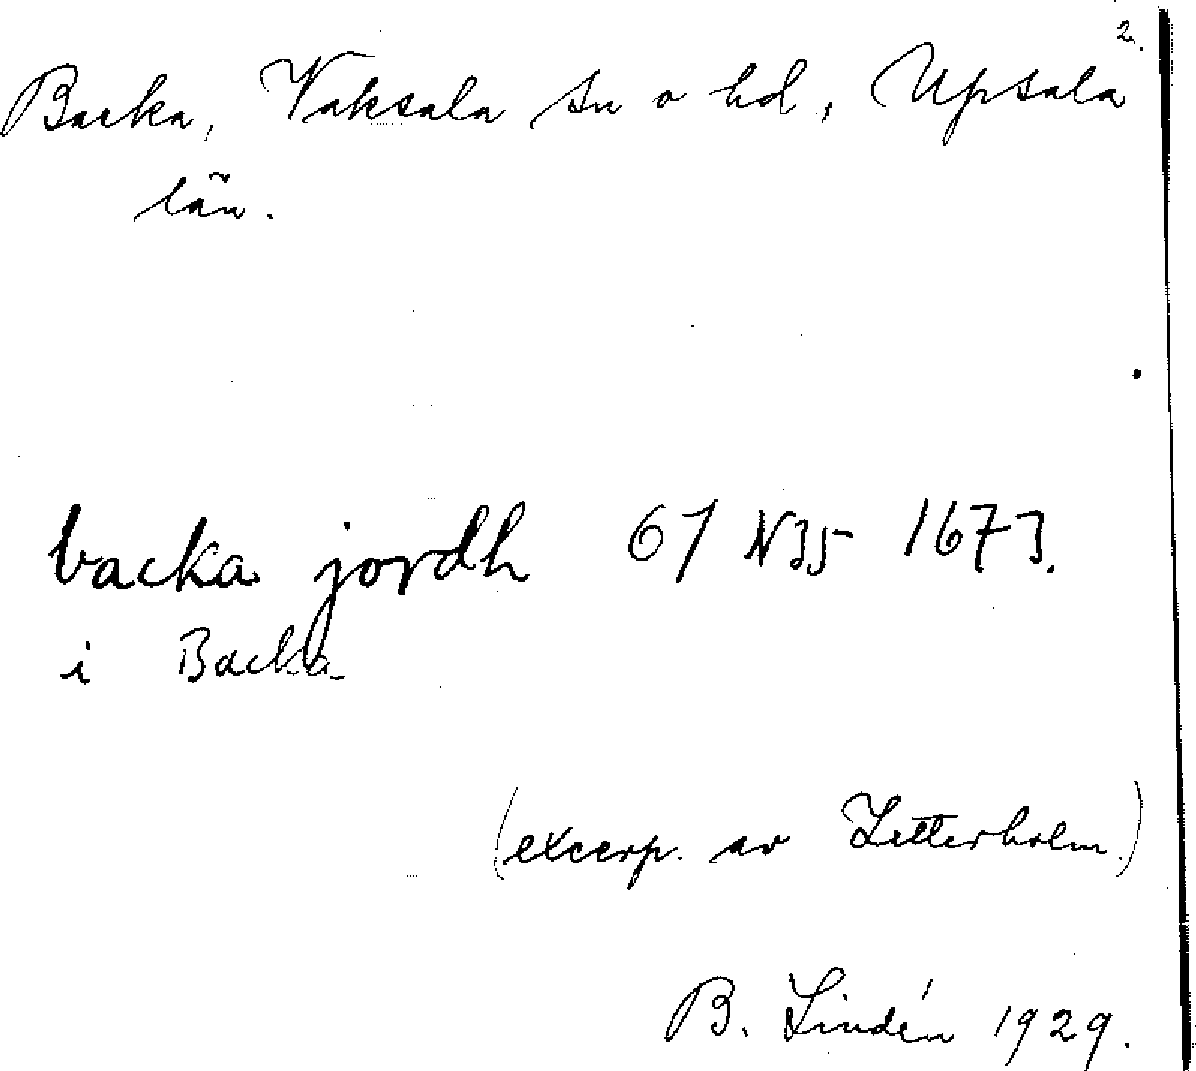 2.
Backa, Vaksala sn o hd, Upsala
län.
backa jordh 67 N35 1673.
i Backa
(excerp. av Zetterholm.)
B. Lindén 1929.